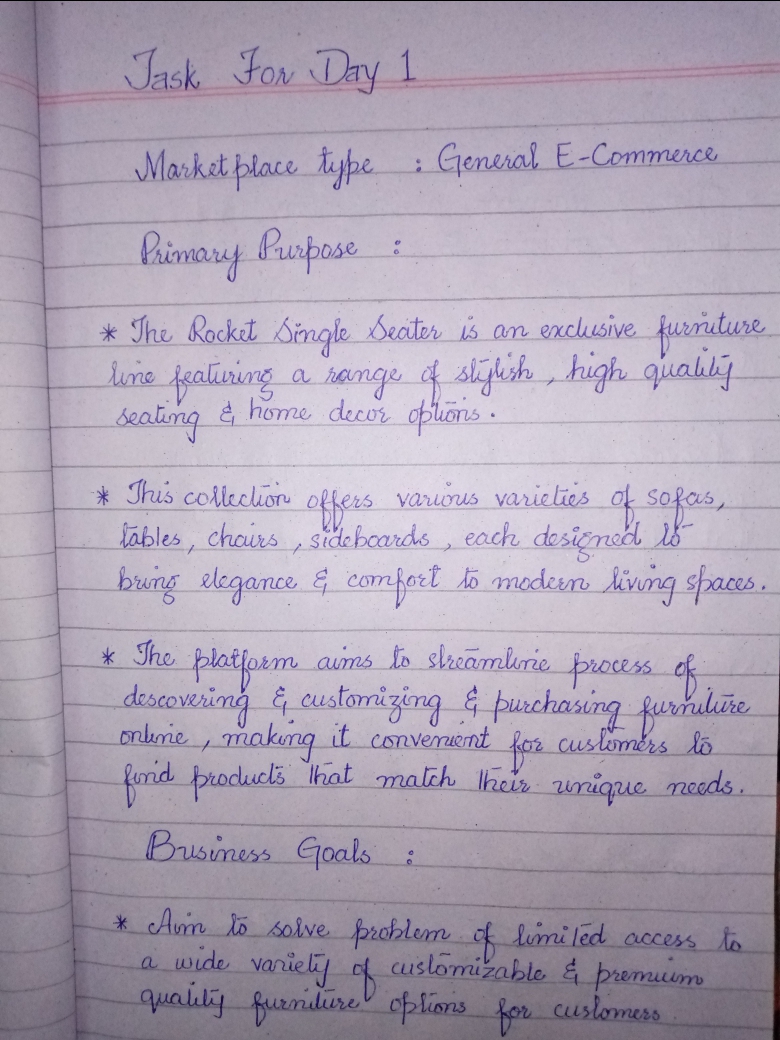 Task For Day 1
Marketplace type : General E-Commerce
Primary Purpose :
* The Rocket Single Seater is an exclusive furniture
line featuring a range of stylish, high quality
seating & home decor options.
* This collection offers various varieties of sofas,
tables, chairs, sideboards, each designed to
bring elegance & comfort to modern living spaces.
* The platform aims to streamline process of
descovering & customizing & purchasing furniture
online, making it convenient for customers to
find products that match their unique needs.
Business Goals :
* Aim to solve problem of limited access to
a wide variety of customizable & premium
quality furniture options for customers